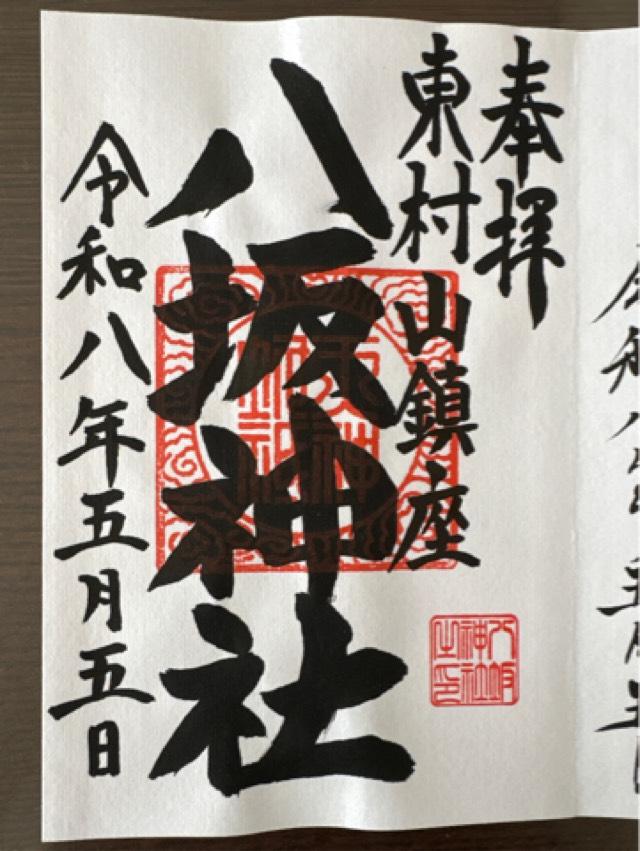 奉拝
東村山鎮座
八坂神社
令和八年五月五日
八坂
神社
之印